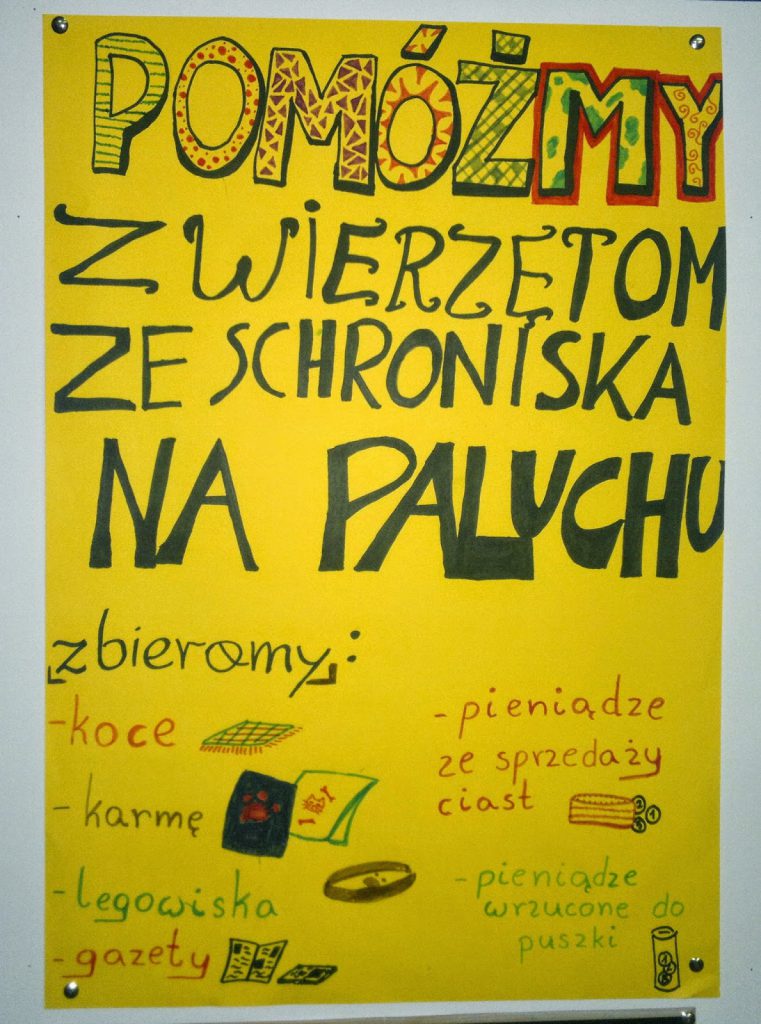 POMÓŻMY
ZWIERZĘTOM
ZE SCHRONISKA
NA PALUCHU
zbieramy:
-koce
-karmę
-legowiska
-gazety
-pieniądze
ze sprzedaży
ciast
-pieniądze
wrzucone do
puszki